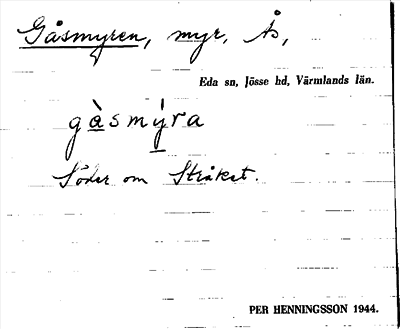 Gåsmyren, myr, Ås,
Eda sn, Jösse hd, Värmlands län.
gàsmý̱ra
Söder om Stråket.
PER HENNINGSSON 1944.